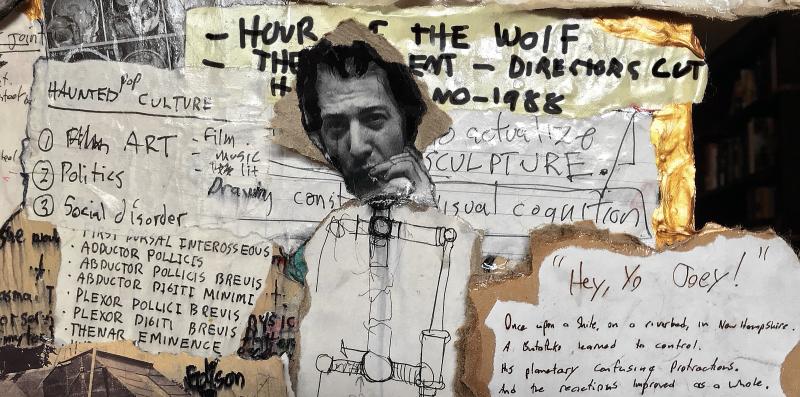 Joint
- HOUR OF THE WOLF
- THE ENT - DIRECTORS CUT
H NO-1988
HAUNTED POP CULTURE
① Film ART
② Politics
③ Social disorder
- Film
- music
- lit
Drawing
to actualize
SCULPTURE.
const visual cognition
FIRST DORSAL INTEROSSEOUS
• ADDUCTOR POLLICIS
• ABDUCTOR POLLICIS BREVIS
• ABDUCTOR DIGITI MINIMI
• PLEXOR POLLICI BREVIS
• PLEXOR DIGITI BREVIS
THENAR EMINENCE
Edison
"Hey, Yo Joey!"
Once upon a shite, on a riverbed, in New Hampshire.
A Butothko learned to control.
His planetary confusing Protractions.
And the reactions improved as a whole.